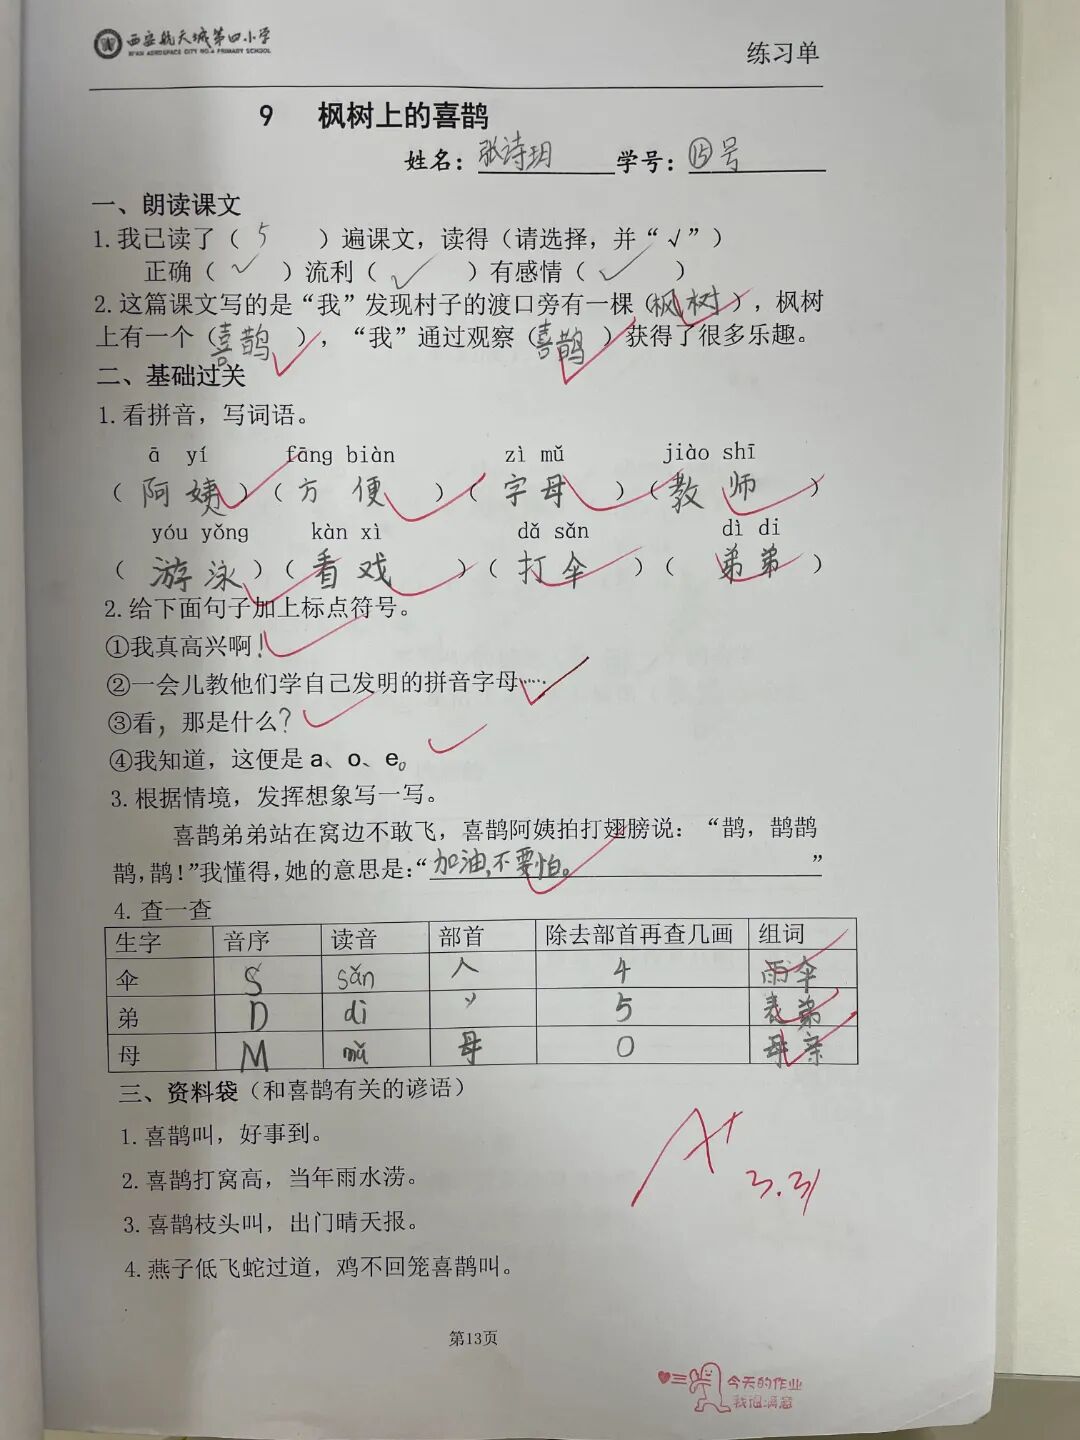 西安航天城第四小学
XI'AN AEROSPACE CITY NO.4 PRIMARY SCHOOL
练习单
9 枫树上的喜鹊
姓名：张诗玥 学号：⑮号
一、朗读课文
1.我已读了（ 5 ）遍课文，读得（请选择，并“√”）
正确（ ✓ ）流利（ ✓ ）有感情（ ✓ ）
2.这篇课文写的是“我”发现村子的渡口旁有一棵（枫树），枫树
上有一个（喜鹊 ），“我”通过观察（喜鹊 ）获得了很多乐趣。
二、基础过关
1.看拼音，写词语。
ā yí fāng biàn zì mǔ jiào shī
（ 阿姨 ）（ 方便 ）（ 字母 ）（ 教师 ）
yóu yǒng kàn xì dǎ sǎn dì di
（ 游泳 ）（ 看戏 ）（ 打伞 ）（ 弟弟 ）
2.给下面句子加上标点符号。
①我真高兴啊！
②一会儿教他们学自己发明的拼音字母……
③看，那是什么？
④我知道，这便是 a、o、e。
3.根据情境，发挥想象写一写。
喜鹊弟弟站在窝边不敢飞，喜鹊阿姨拍打翅膀说：“鹊，鹊鹊
鹊，鹊！”我懂得，她的意思是：“加油，不要怕。”
4.查一查
生字 音序 读音 部首 除去部首再查几画 组词
伞 S sǎn 人 4 雨伞
弟 D dì 丷 5 表弟
母 M mǔ 母 0 母亲
三、资料袋（和喜鹊有关的谚语）
1.喜鹊叫，好事到。
2.喜鹊打窝高，当年雨水涝。
3.喜鹊枝头叫，出门晴天报。
4.燕子低飞蛇过道，鸡不回笼喜鹊叫。
A+
3.31
第13页
今天的作业
我很满意